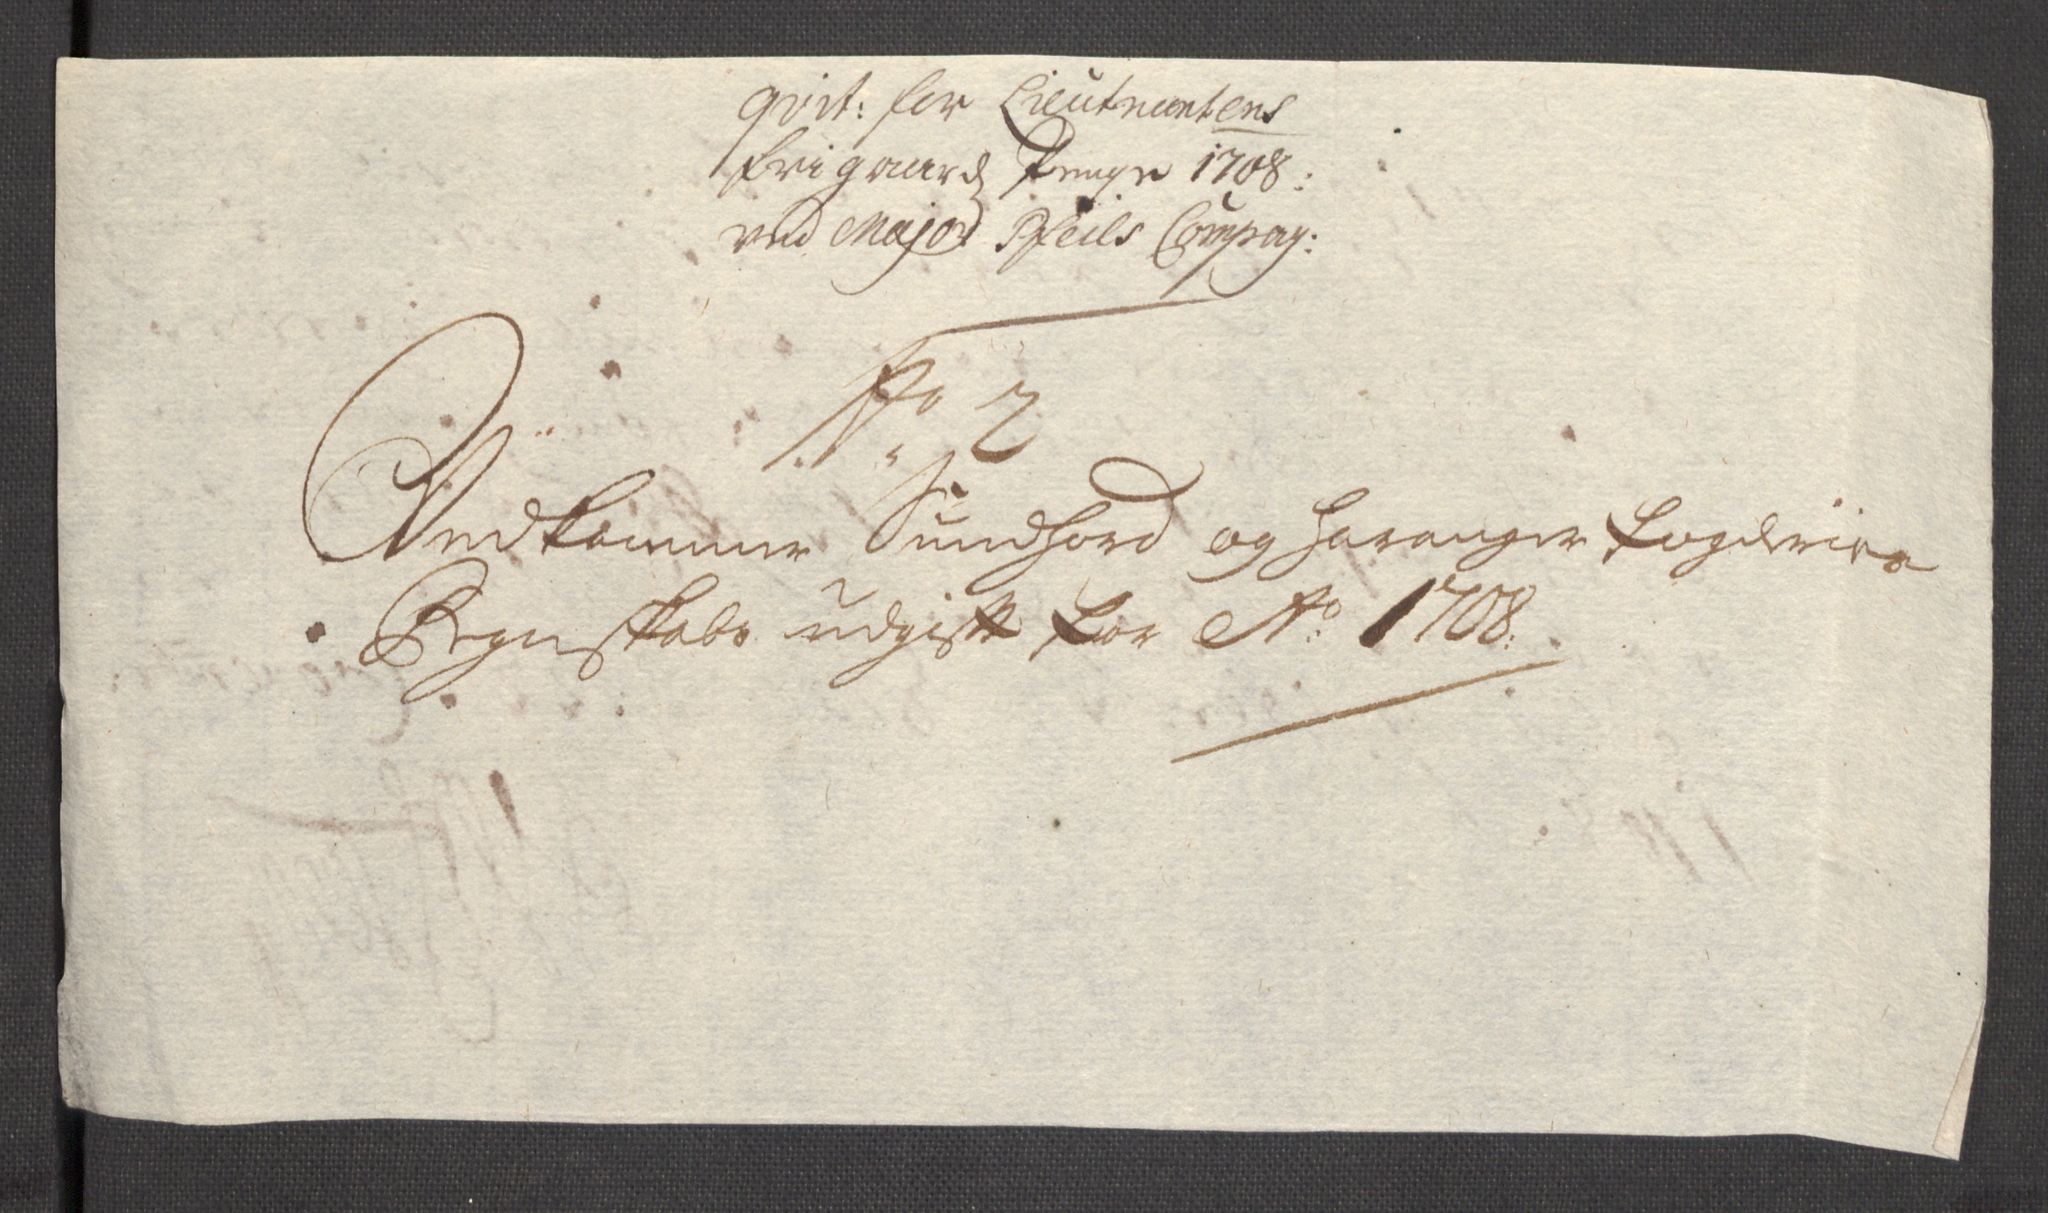 Qvit: for Lieutnantens
frigaards Penge 1708:
ved Major Pfeils Compag:
No 2
Vedkommer Sundhord og Haranger fogderies
Regnskabs udgift for Ao: 1708: